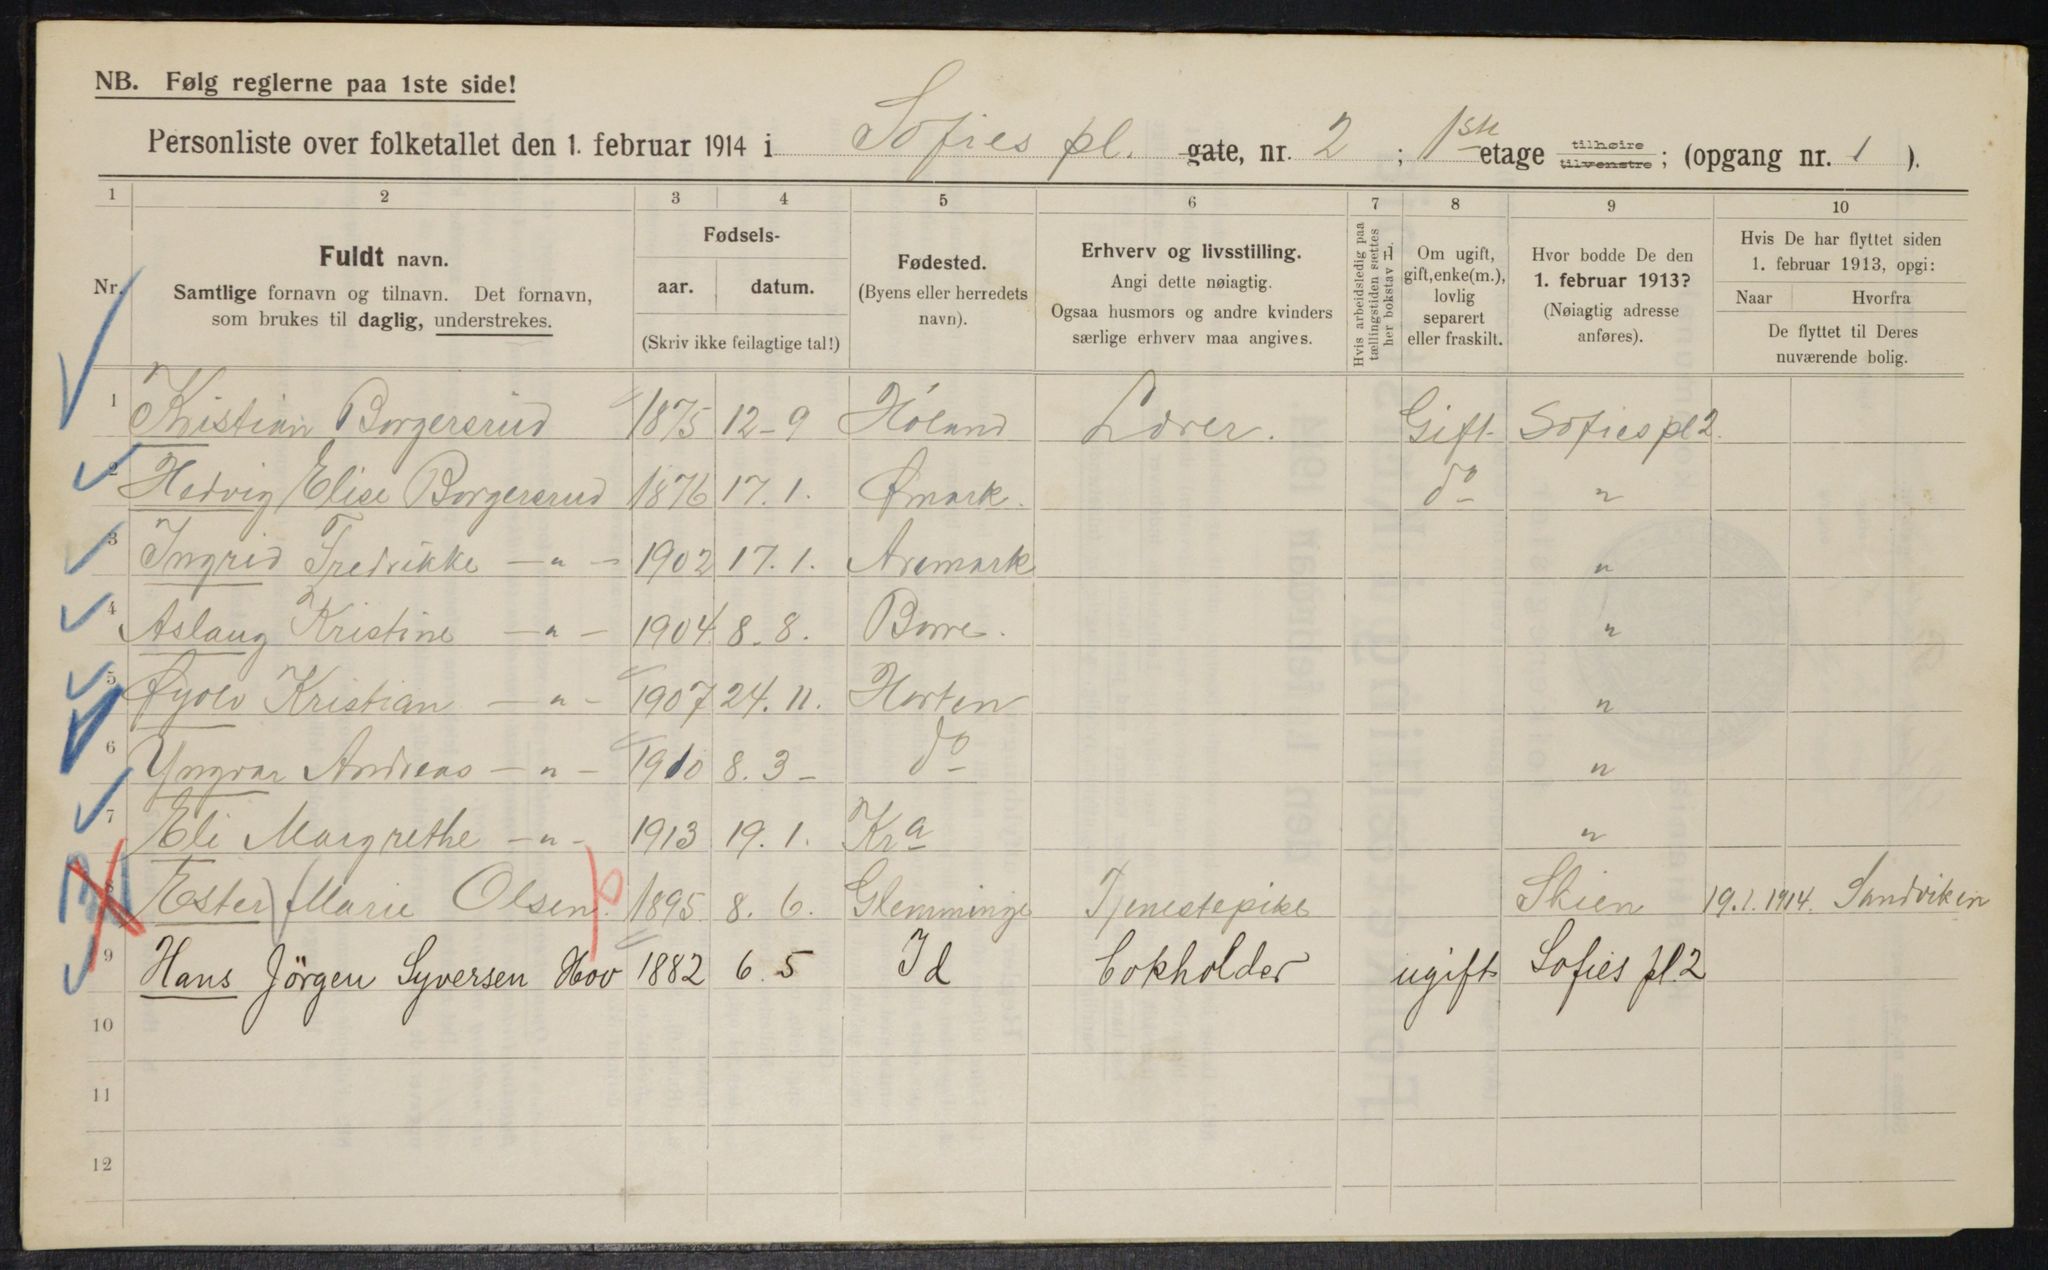 NB. Følg reglerne paa 1ste side!
Personliste over folketallet den 1. februar 1914 i Sofies pl. gate, nr. 2 ; 1ste etage tilhøire tilvenstre ; (opgang nr. 1 ).
1 2 3 4 5 6 7 8 9 10
Nr.
Fuldt navn.
Samtlige fornavn og tilnavn. Det fornavn,
som brukes til daglig, understrekes.
Fødsels-
aar. datum.
(Skriv ikke feilagtige tal!)
Fødested.
(Byens eller herredets
navn).
Erhverv og livsstilling.
Angi dette nøiagtig.
Ogsaa husmors og andre kvinders
særlige erhverv maa angives.
Hvis arbeidsledig paa
tællingstiden sættes
her bokstav L
Om ugift,
gift, enke(m.),
lovlig
separert
eller fraskilt.
Hvor bodde De den
1. februar 1913?
(Nøiagtig adresse
anføres).
Hvis De har flyttet siden
1. februar 1913, opgi:
Naar Hvorfra
De flyttet til Deres
nuværende bolig.
1 Kristian Borgersrud 1875 12-9 Høland Lærer. Gift Sofies pl 2.
2 Hedvig Elise Borgersrud 1876 17.1. Ømark. do "
3 Ingrid Fredrikke — " — 1902 17.1. Aremark "
4 Aslaug Kristine — " — 1904 8-8. Borre. "
5 Øyolv Kristian — " — 1907 24.11. Horten "
6 Yngvar Andreas — " — 1910 8.3- do "
7 Eli Margrethe — " — 1913 19.1. Kra "
8 Ester (Marie Olsen.) 1895 8.6. Glemminge Tjenestepike Skien 19.1.1914. Sandviken
9 Hans Jörgen Syversen Hov 1882 6.5 Id Bokholder ugift Sofies pl. 2
10
11
12